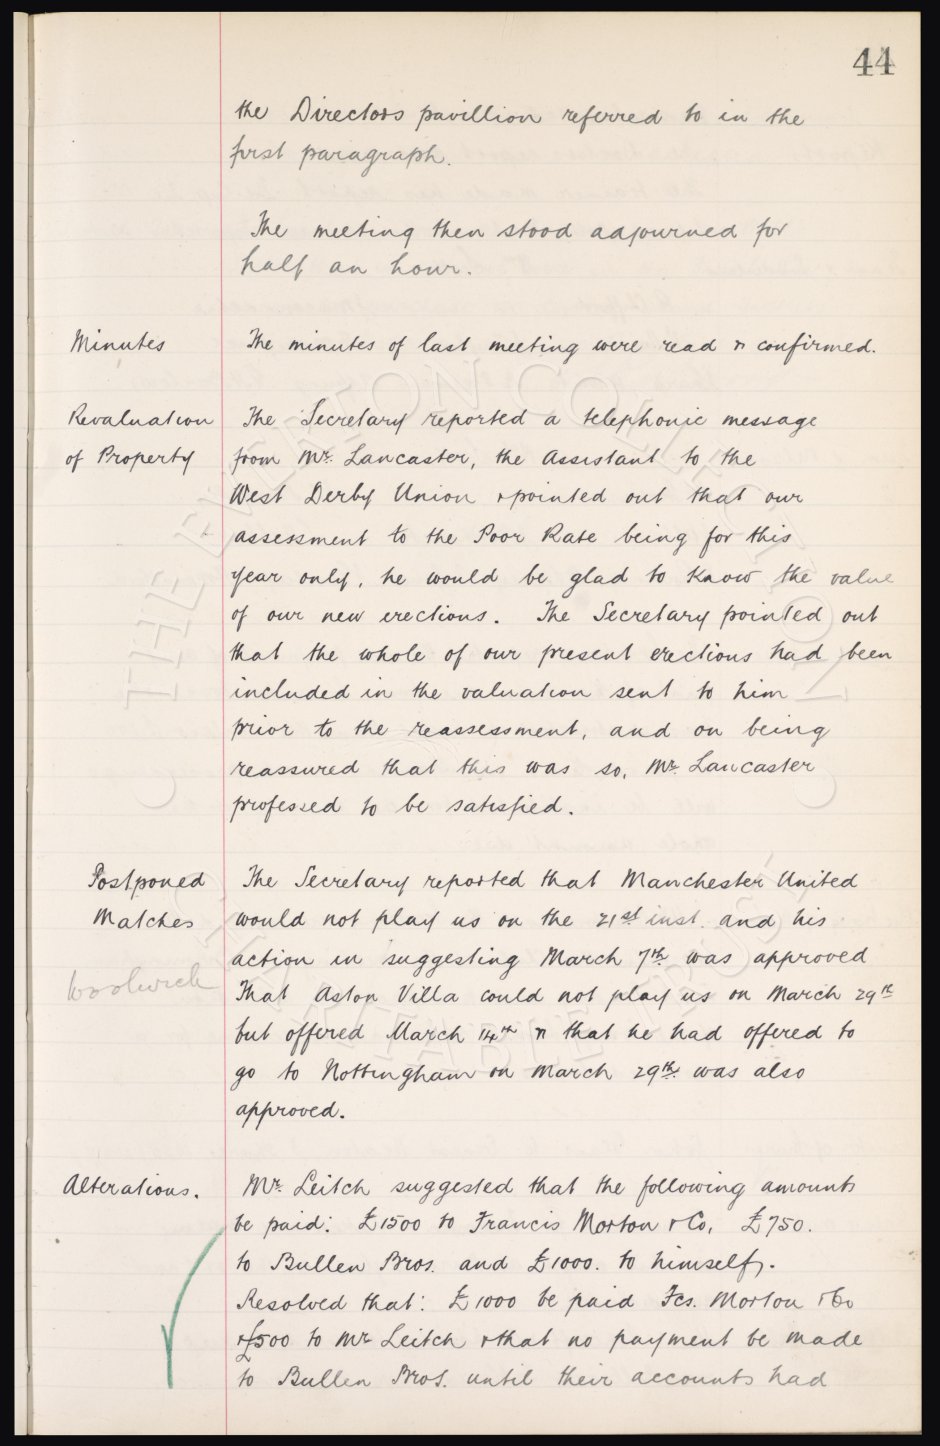 44
the Directors pavillion referred to in the
first paragraph.
The meeting then stood adjourned for
half an hour.
Minutes
The minutes of last meeting were read & confirmed.
Revaluation
of Property
The Secretary reported a telephonic message
from Mr. Lancaster, the Assistant to the
West Derby Union & pointed out that our
assessment to the Poor Rate being for this
year only, he would be glad to know the value
of our new erections. The Secretary pointed out
that the whole of our present erections had been
included in the valuation sent to him
prior to the reassessment, and on being
reassured that this was so, Mr. Lancaster
professed to be satisfied.
Postponed
Matches
Woolwich
The Secretary reported that Manchester United
would not play us on the 21st inst. and his
action in suggesting March 7th was approved
That Aston Villa could not play us on March 29th
but offered March 14th & that he had offered to
go to Nottingham on March 29th was also
approved.
Alterations.
Mr. Leitch suggested that the following amounts
be paid: £1500 to Francis Morton & Co, £750.
to Bullen Bros. and £1000. to himself.
Resolved that: £1000 be paid Fcs. Morton & Co
& £500 to Mr Leitch & that no payment be made
to Bullen Bros. until their accounts had
THE EVERTON COLLECTION
CHARITABLE TRUST